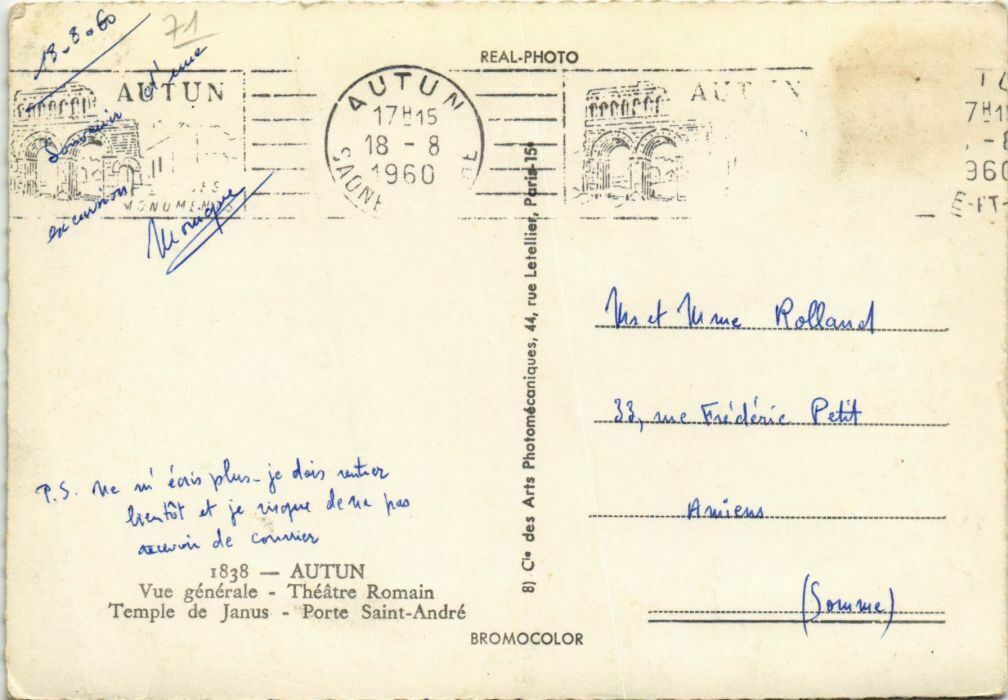 18.8.60
71
Souvenir d'une
excursion
Monique
REAL-PHOTO
AUTUN
MONUMENTS
AUTUN
17H15
18 - 8
1960
SAONE
AUTUN
7H15
- 8
960
E-ET-
8) Cie des Arts Photomécaniques, 44, rue Letellier, Paris-15e
Mr et Mme Rolland
33, rue Frédéric Petit
Amiens
(Somme)
P.S. Ne m'écris plus - je dois rentrer
bientôt et je risque de ne pas
recevoir de courrier
1838 — AUTUN
Vue générale - Théâtre Romain
Temple de Janus - Porte Saint-André
BROMOCOLOR